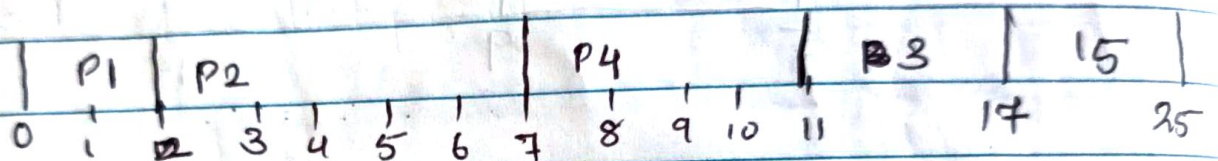 P1 P2 P4 P3 15
0 1 2 3 4 5 6 7 8 9 10 11 17 25